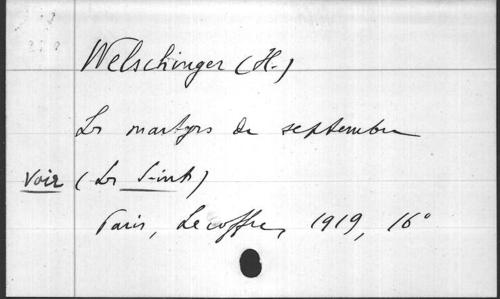 Welschinger (H.)
Les martyrs de septembre
Voir (Les Saints)
Paris, Lecoffre, 1919, 16°